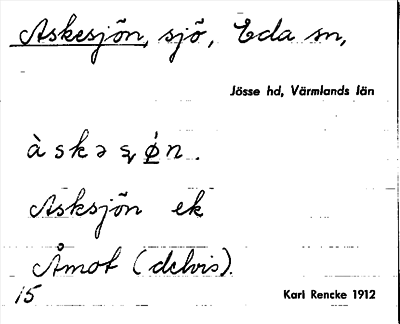 Askesjön, sjö, Eda sn,
Jösse hd, Värmlands län
àskə ȿø̀n.
Asksjön ek
Åmot (delvis).
15
Karl Rencke 1912